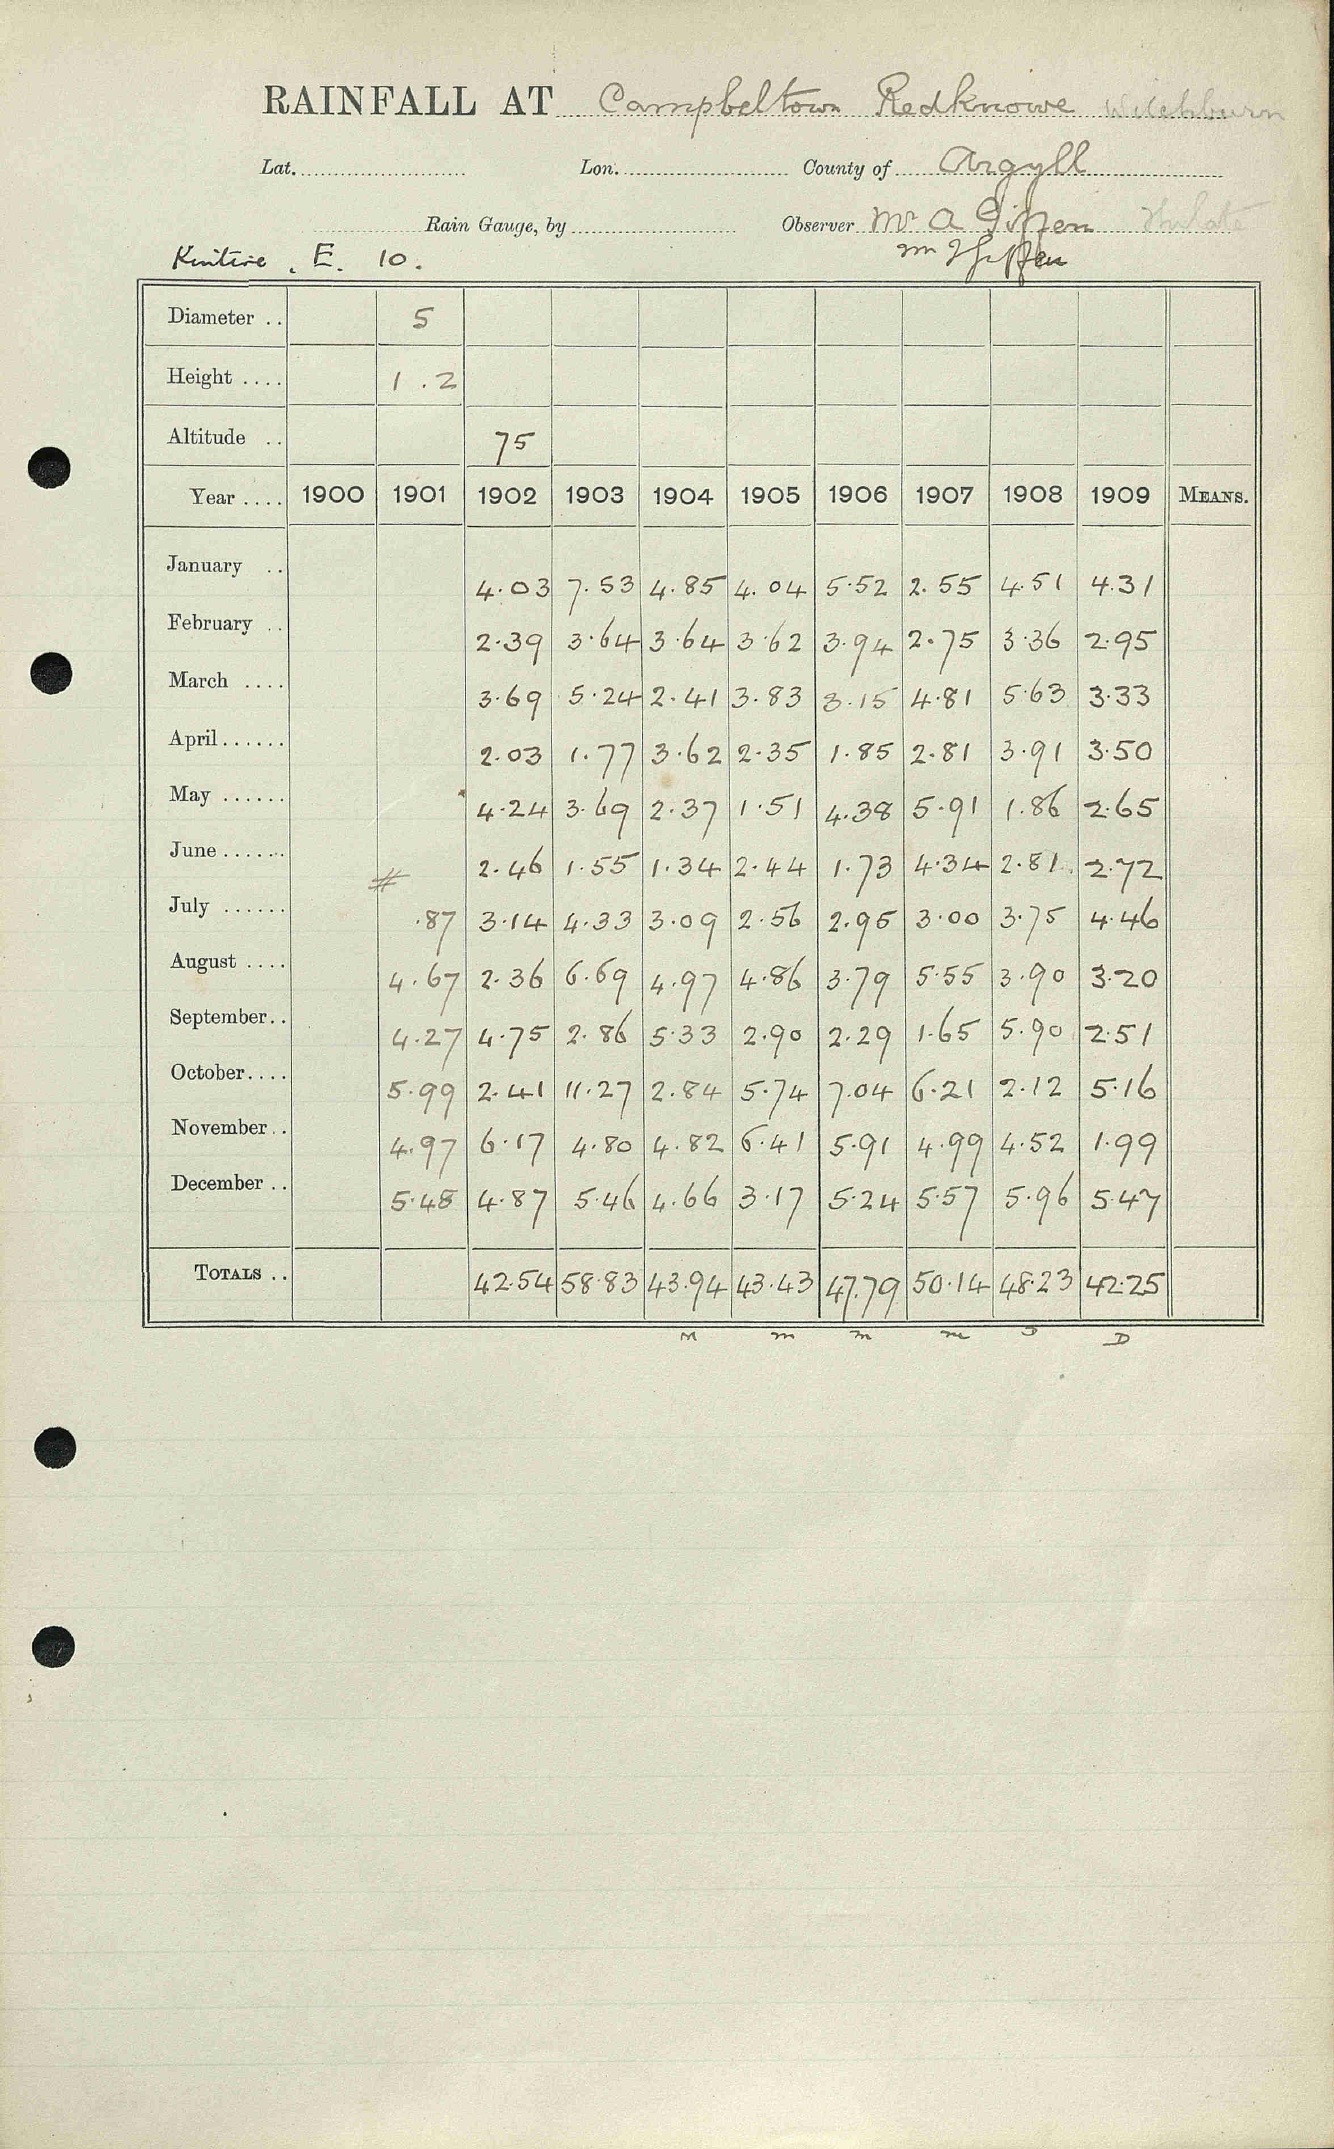 RAINFALL AT Campbeltown Redknowe Witchburn
Lat. Lon. County of Argyll
Rain Gauge, by Observer Mr A Giffen
Kintire . E. 10.
Diameter .. 5
Height .... 1.2
Altitude .. 75
Year .... 1900 1901 1902 1903 1904 1905 1906 1907 1908 1909 MEANS.
January .. 4.03 7.53 4.85 4.04 5.52 2.55 4.51 4.31
February .. 2.39 3.64 3.64 3.62 3.94 2.75 3.36 2.95
March .... 3.69 5.24 2.41 3.83 3.15 4.81 5.63 3.33
April...... 2.03 1.77 3.62 2.35 1.85 2.81 3.91 3.50
May ...... 4.24 3.69 2.37 1.51 4.38 5.91 1.86 2.65
June...... 2.46 1.55 1.34 2.44 1.73 4.34 2.81 2.72
July ...... # .87 3.14 4.33 3.09 2.56 2.95 3.00 3.75 4.46
August .... 4.67 2.36 6.69 4.97 4.86 3.79 5.55 3.90 3.20
September.. 4.27 4.75 2.86 5.33 2.90 2.29 1.65 5.90 2.51
October.... 5.99 2.41 11.27 2.84 5.74 7.04 6.21 2.12 5.16
November.. 4.97 6.17 4.80 4.82 6.41 5.91 4.99 4.52 1.99
December .. 5.48 4.87 5.46 4.66 3.17 5.24 5.57 5.96 5.47
TOTALS .. 42.54 58.83 43.94 43.43 47.79 50.14 48.23 42.25
M m m m S D